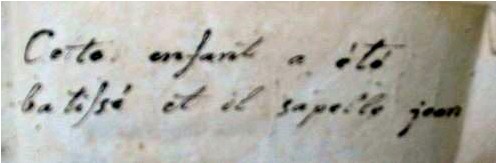 Cette enfant a été
batissé et il sapelle jean